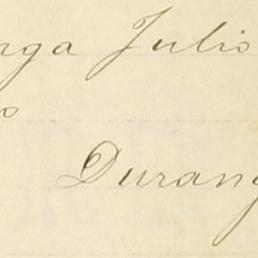 nga Julio
o
Durang